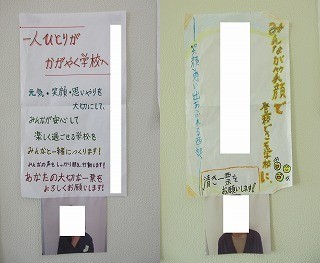 一人ひとりが
かがやく学校へ
元気・笑顔・思いやりを
大切にして、
みんなが安心して
楽しく過ごせる学校を
みんなと一緒につくります!
みんなの声をしっかり聞き、行動します!
あなたの大切な一票を
よろしくお願いします!
みんなが笑顔で
登校できる学校に
清き一票を
お願いします!